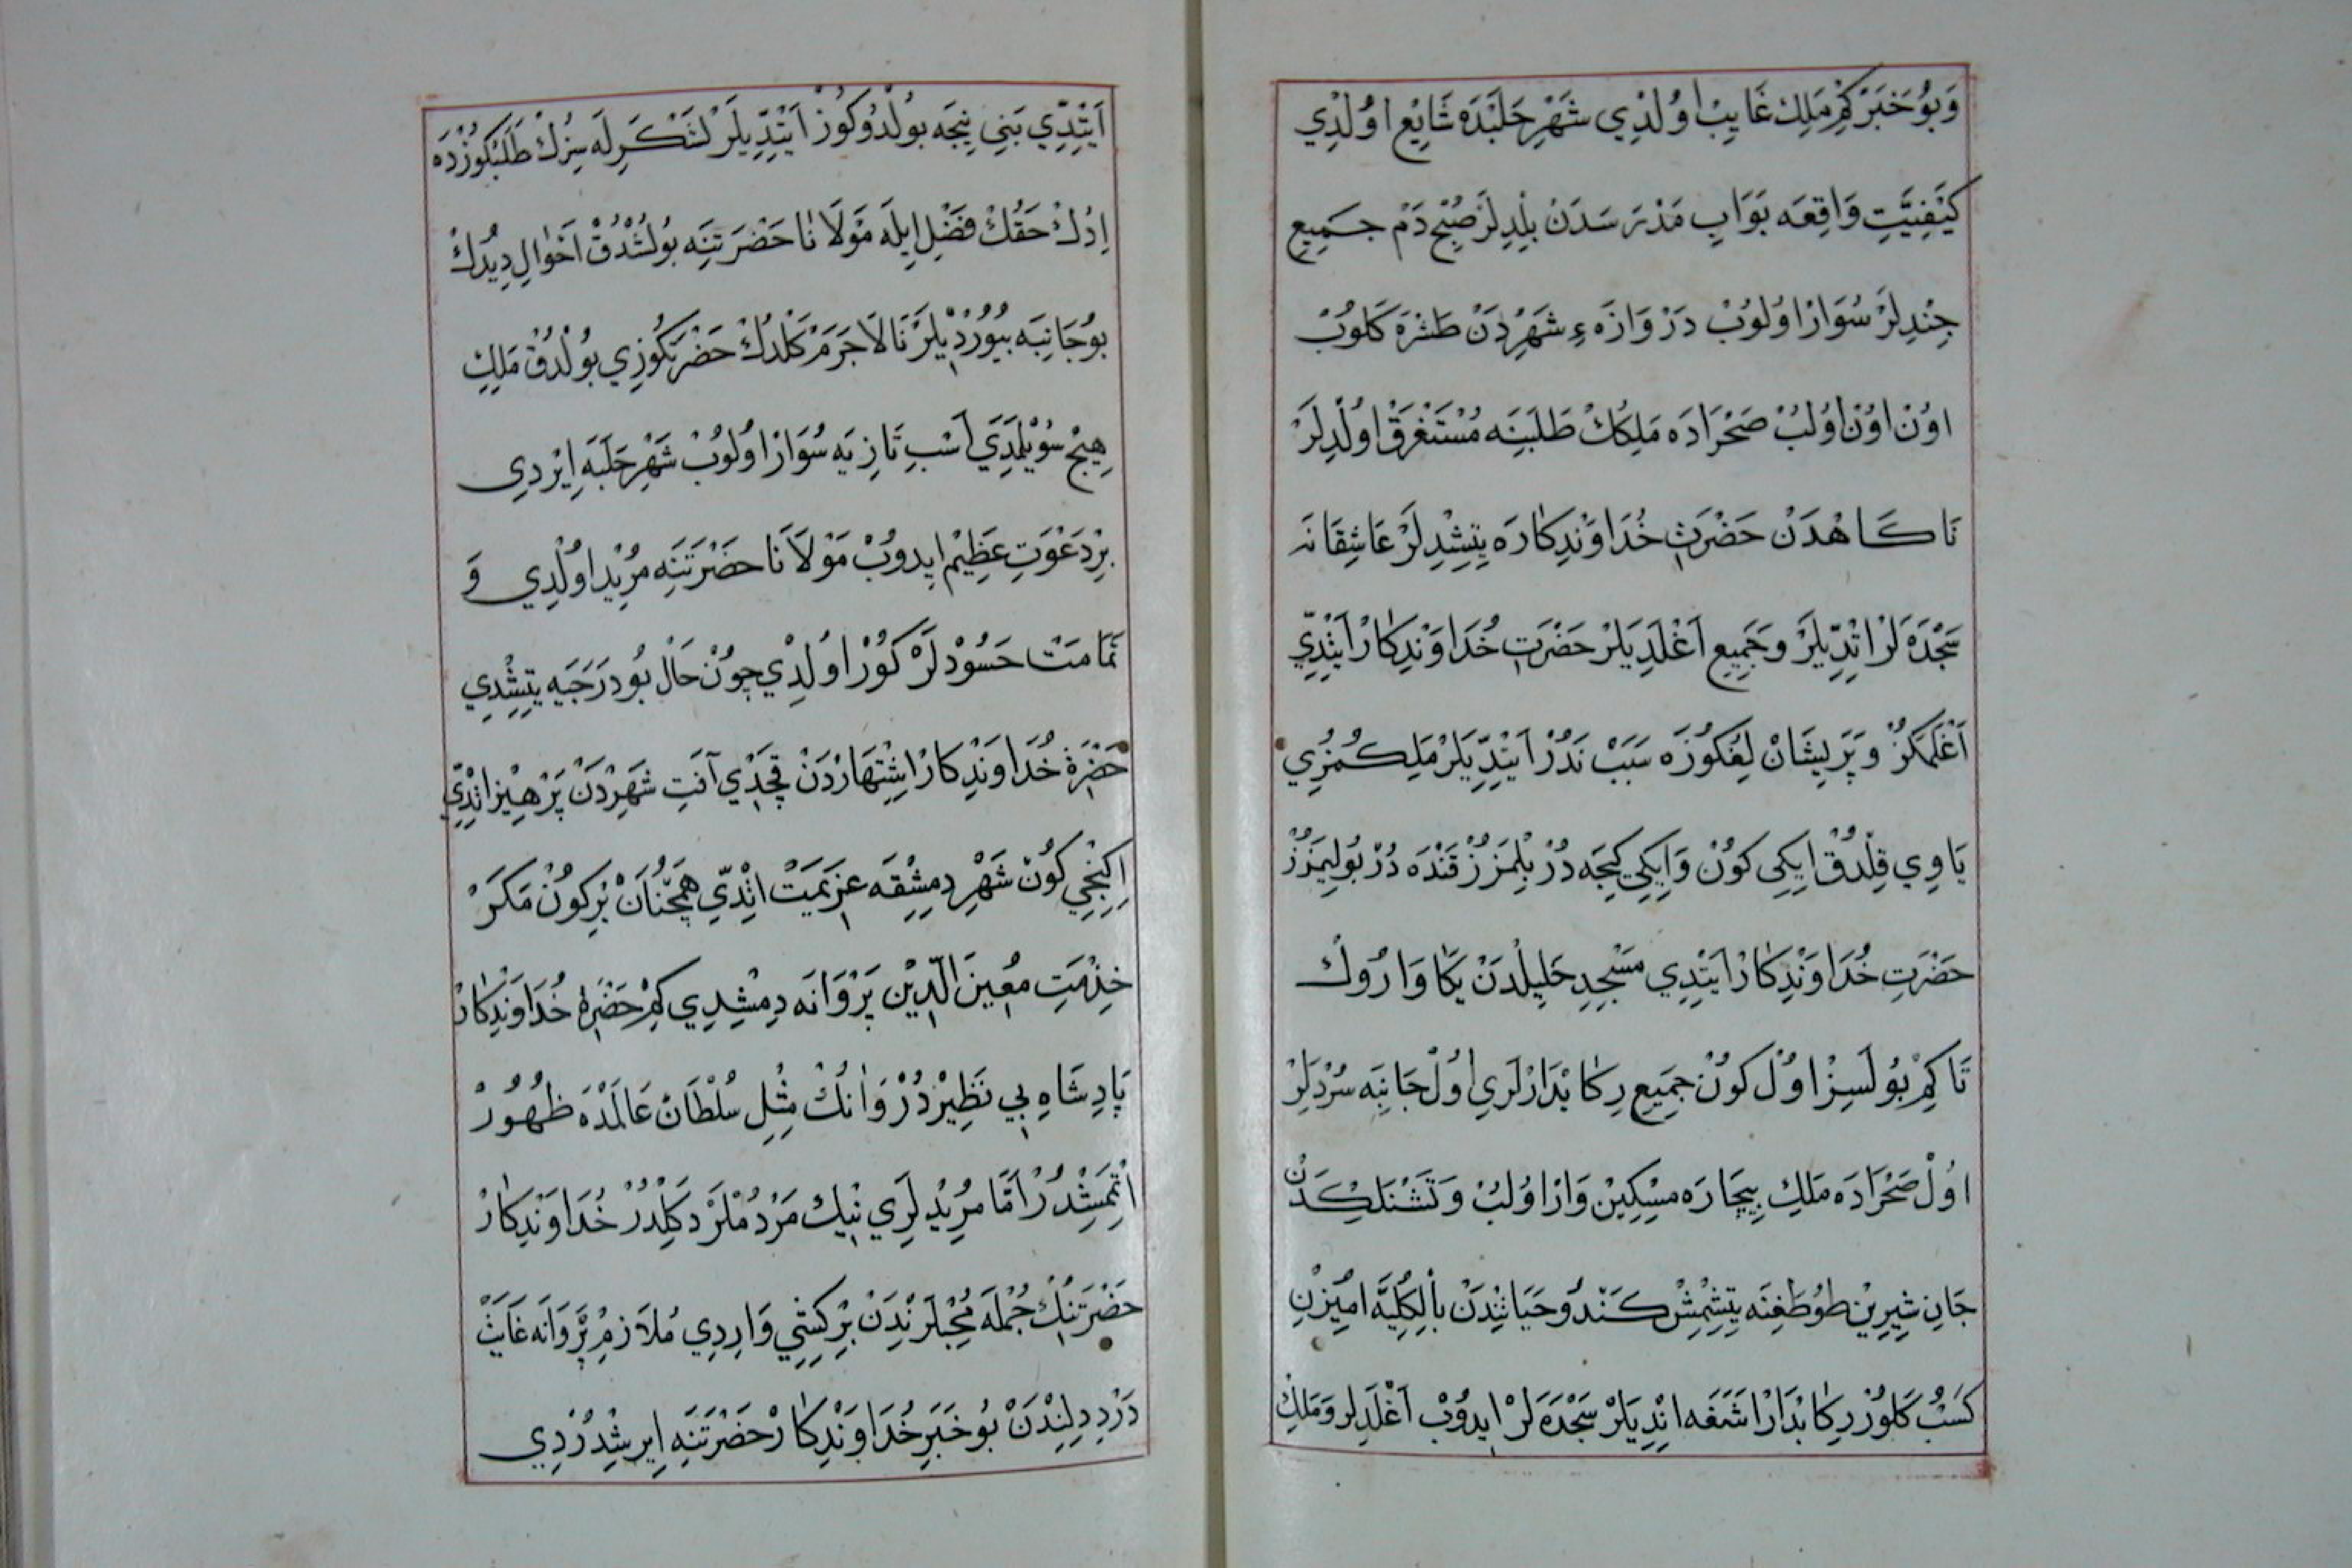 وَبُو خَبَرْ كِمْ مَلِكْ غَايِبْ اُولْدِي شَهْرِ حَلَبْدَه شَايِعْ اُولْدِي
كَيْفِيَّتِ وَاقِعَه بَوَابِ مَدْرَسَدَنْ بِلْدِلَرْ صُبْحْ دَمْ جَمِيعِ
جِنْدِلَرْ سُوَارْ اُولُوبْ دَرْوَازَهءِ شَهْرِدَنْ طَشْرَه كَلُوبْ
اُونْ اُونْ اُولُبْ صَحْرَادَه مَلِكُكْ طَلَبِنَه مُسْتَغْرَقْ اُولْدِلَرْ
نَاكَاهْدَنْ حَضْرَتِ خُدَاوَنْدِكَارَه يِتِشْدِلَرْ عَاشِقَانَه
سَجْدَه لَرْ اتْدِّيلَرْ وَجَمِيعِ اَغْلَدِيلَرْ حَضْرَتِ خُدَاوَنْدِكَارْ اَيْتْدِّي
اَغْلَمَكُزْ وَپَرِيشَانْ لِغِكُوزَه سَبَبْ نَدُرْ اَيْتْدِّيلَرْ مَلِكُمُزِي
يَاوِي قِلْدُقْ اِيكِي كُونْ وَاِيكِي كِيجَه دُرْ بِلْمَزُزْ قَنْدَه دُرْ بُولِيمَزُزْ
حَضْرَتِ خُدَاوَنْدِكَارْ اَيْتْدِي مَسْجِدِ خَلِيلْدَنْ يَكَا وَارُوكْ
تَا كِمْ بُولَسِزْ اُولْ كُونْ جَمِيعِ رِكَابْدَارْلَرِي اُولْ جَانِبَه سُرْدِلَرْ
اُولْ صَحْرَادَه مَلِكِ بِيچَارَه مِسْكِينْ وَارْ اُولُبْ وَتَشْنَلِكْدَنْ
جَانِ شِيرِينْ طُوطَغِنَه يِتِشْمِشْ كَنْدُو حَيَاتِنْدَنْ بِالْكُلِيَّه امُيِزِنِ
كَسُبْ كَلُورْ رِكَابْدَارْ اشَغَه انْدِيلَرْ سَجْدَه لَرْ ايدُوبْ اَغْلَدِلَر وَمَلِكْ
اَيْتْدِّي بَنِي نِيجَه بُولْدُوكُوزْ اَيْتْدِّيلَرْ لَشْكَرِلَه سِزُكْ طَلَبِكُوزْدَه
اِدُكْ حَقُكْ فَضْلِ اِيلَه مَوْلَانَا حَضْرَتِنَه بُولُشْدُقْ اَحْوَالِ دِيدُكْ
بُو جَانِبَه بُيُورْدِيلَرْ نَا لَا جَرَمْ كَلْدُكْ حَضْرَتِكُوزِي بُولْدُقْ مَلِكْ
هِيچْ سُويْلَمَدِي اَسْبِ تَازِيَه سُوَارْ اُولُوبْ شَهْرِ حَلَبَه اِيرْدِي
بِرْ دَعْوَتِ عَظِيمْ ايدُوبْ مَوْلَانَا حَضْرَتِنَه مُرِيدْ اُولْدِي وَ
تَمَامَتْ حَسُودْلَرْ كُورْ اُولْدِي چُونْ حَالْ بُو دَرَجَيَه يِتِشْدِي
حَضْرَةِ خُدَاوَنْدِكَارْ اِشْتِهَارْدَنْ قَچْدِي آفَتِ شَهْرِدَنْ پَرْهِيزْ اتْدِّي
اِكِنْجِي كُونْ شَهْرِ دِمِشْقَه عَزِيمَتْ اتْدِّي هَمْچُنَانْ بِرْ كُونْ مَكَرْ
خِذْمَتِ مُعِينَ الدِّينْ پَرْوَانَه دِمِشْدِي كِمْ حَضْرَةِ خُدَاوَنْدِكَارْ
پَادِشَاهِ بِي نَظِيرْدُرْ وَانُكْ مِثْلِ سُلْطَانْ عَالَمْدَه ظُهُورْ
اتْمَمِشْدُرْ اَمَّا مُرِيدْلَرِي نِيكْ مَرْدُمْلَرْ دَكِلْدُرْ خُدَاوَنْدِكَارْ
حَضْرَتِنُكْ جُمْلَه مُحِبْلَرِنْدَنْ بِرْ كِشِي وَارِدِي مُلَازِمِ پَرْوَانَه غَايَتْ
دَرْدِ دِلِنْدَنْ بُو خَبَرِ خُدَاوَنْدِكَارْ حَضْرَتِنَه اِيرِشْدُرْدِي